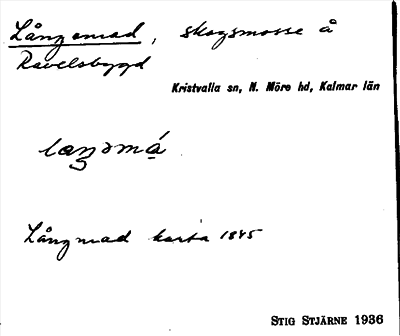 Långamad, skogsmosse å
Ravelsbygd
Kristvalla sn, N. Möre hd, Kalmar län
Långmad karta 1845
STIG STJÄRNE 1936